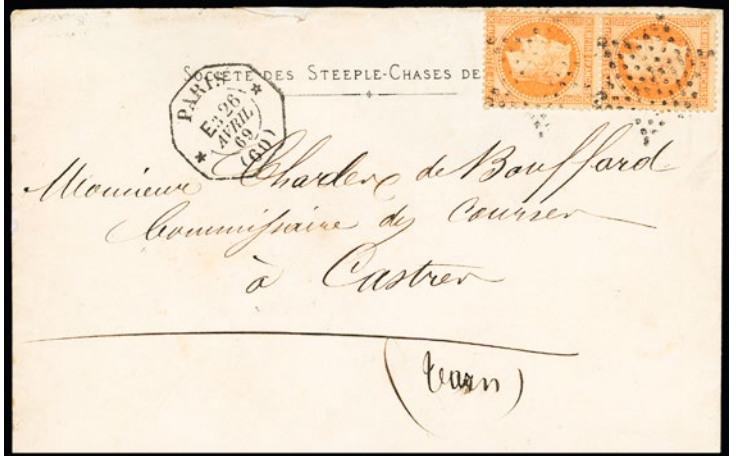 SOCIÉTÉ DES STEEPLE-CHASES DE
PARIS
E3 26
AVRIL
69
(60)
Monsieur Charles de Bouffard
Commissaire des Courses
à Castres
(Tarn)